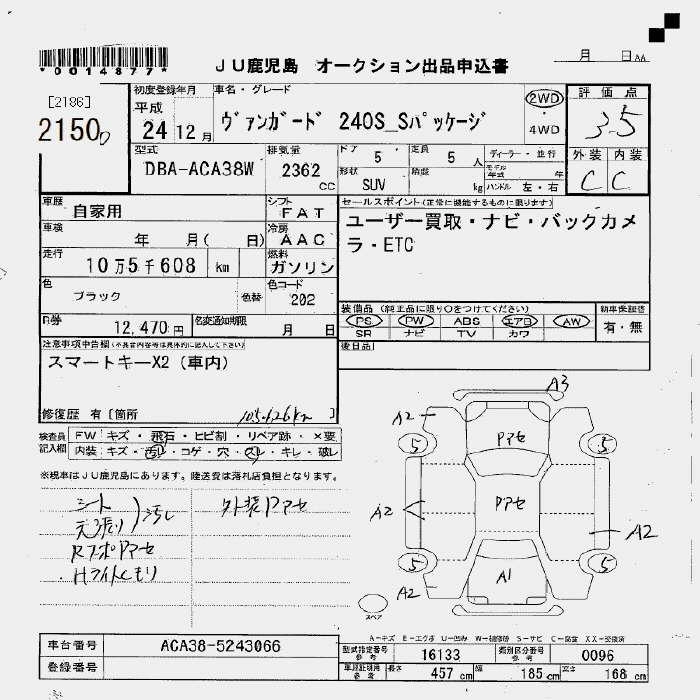 *0014877*
JU鹿児島 オークション出品申込書
月 日 AA
[2186]
2150
初度登録年月
平成
24 12 月
車名・グレード
ヴァンガード 240S_Sパッケージ
2WD
・
4WD
評価点
3.5
型式
DBA-ACA38W
排気量
2362
cc
ドア
5
定員
5 人
ディーラー・並行
モデル年式 年
形状
SUV
積載
kg
ハンドル 左・右
外装 内装
C C
車歴
自家用
シフト
FAT
セールスポイント(正常に機能するものに限ります)
ユーザー買取・ナビ・バックカメ
ラ・ETC
車検
年 月( 日)
冷房
AAC
走行
10万5千608 km
燃料
ガソリン
色
ブラック
色替
色コード
202
装備品 (純正品に限り○をつけてください)
PS PW ABS エアB AW
SR ナビ TV カワ
新車保証書
有・無
R券
12,470 円
名変通知期限
月 日
後日品
注意事項申告欄(不具合内容等は具体的に記入して下さい)
スマートキーX2 (車内)
修復歴 有 [箇所 105,626km ]
検査員
記入欄
FW キズ・飛石・ヒビ割・リペア跡・×要
内装 キズ・汚れ・コゲ・穴・スレ・キレ・破レ
※税車はJU鹿児島にあります。陸送費は落札店負担となります。
シート
天張り
汚れ
RスポPアセ
Hライトくもり
外装Pアセ
A3
A2
5
Pアセ
5
A2
Pアセ
A2
5
A1
5
A2
スペア
A-キズ E-エクボ U-凹み W-補修跡 S-サビ C-腐食 XX-交換済
車台番号
ACA38-5243066
登録番号
型式指定番号
参考
16133
類別区分番号
参考
0096
車庫証明用
参考
長さ
457 cm
幅
185 cm
高さ
168 cm